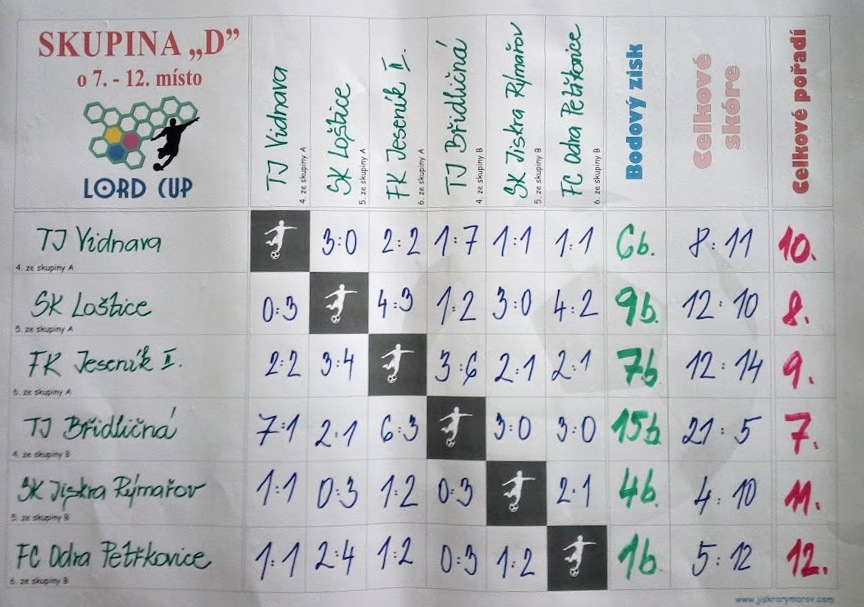 SKUPINA „D”
o 7. - 12. místo
LORD CUP
TJ Vidnava
4. ze skupiny A
SK Loštice
5. ze skupiny A
FK Jeseník II.
6. ze skupiny A
TJ Břidličná
4. ze skupiny B
SK Jiskra Rýmařov
5. ze skupiny B
FC Odra Petřkovice
6. ze skupiny B
Bodový zisk
Celkové skóre
Celkové pořadí
TJ Vidnava 3:0 2:2 1:7 1:1 1:1 6b. 8:11 10.
4. ze skupiny A
SK Loštice 0:3 4:3 1:2 3:0 4:2 9b. 12:10 8.
5. ze skupiny A
FK Jeseník II. 2:2 3:4 3:6 2:1 2:1 7b 12:14 9.
6. ze skupiny A
TJ Břidličná 7:1 2:1 6:3 3:0 3:0 15b. 21:5 7.
4. ze skupiny B
SK Jiskra Rýmařov 1:1 0:3 1:2 0:3 2:1 4b. 4:10 11.
5. ze skupiny B
FC Odra Petřkovice 1:1 2:4 1:2 0:3 1:2 1b. 5:12 12.
6. ze skupiny B
www.jiskrarymarov.com